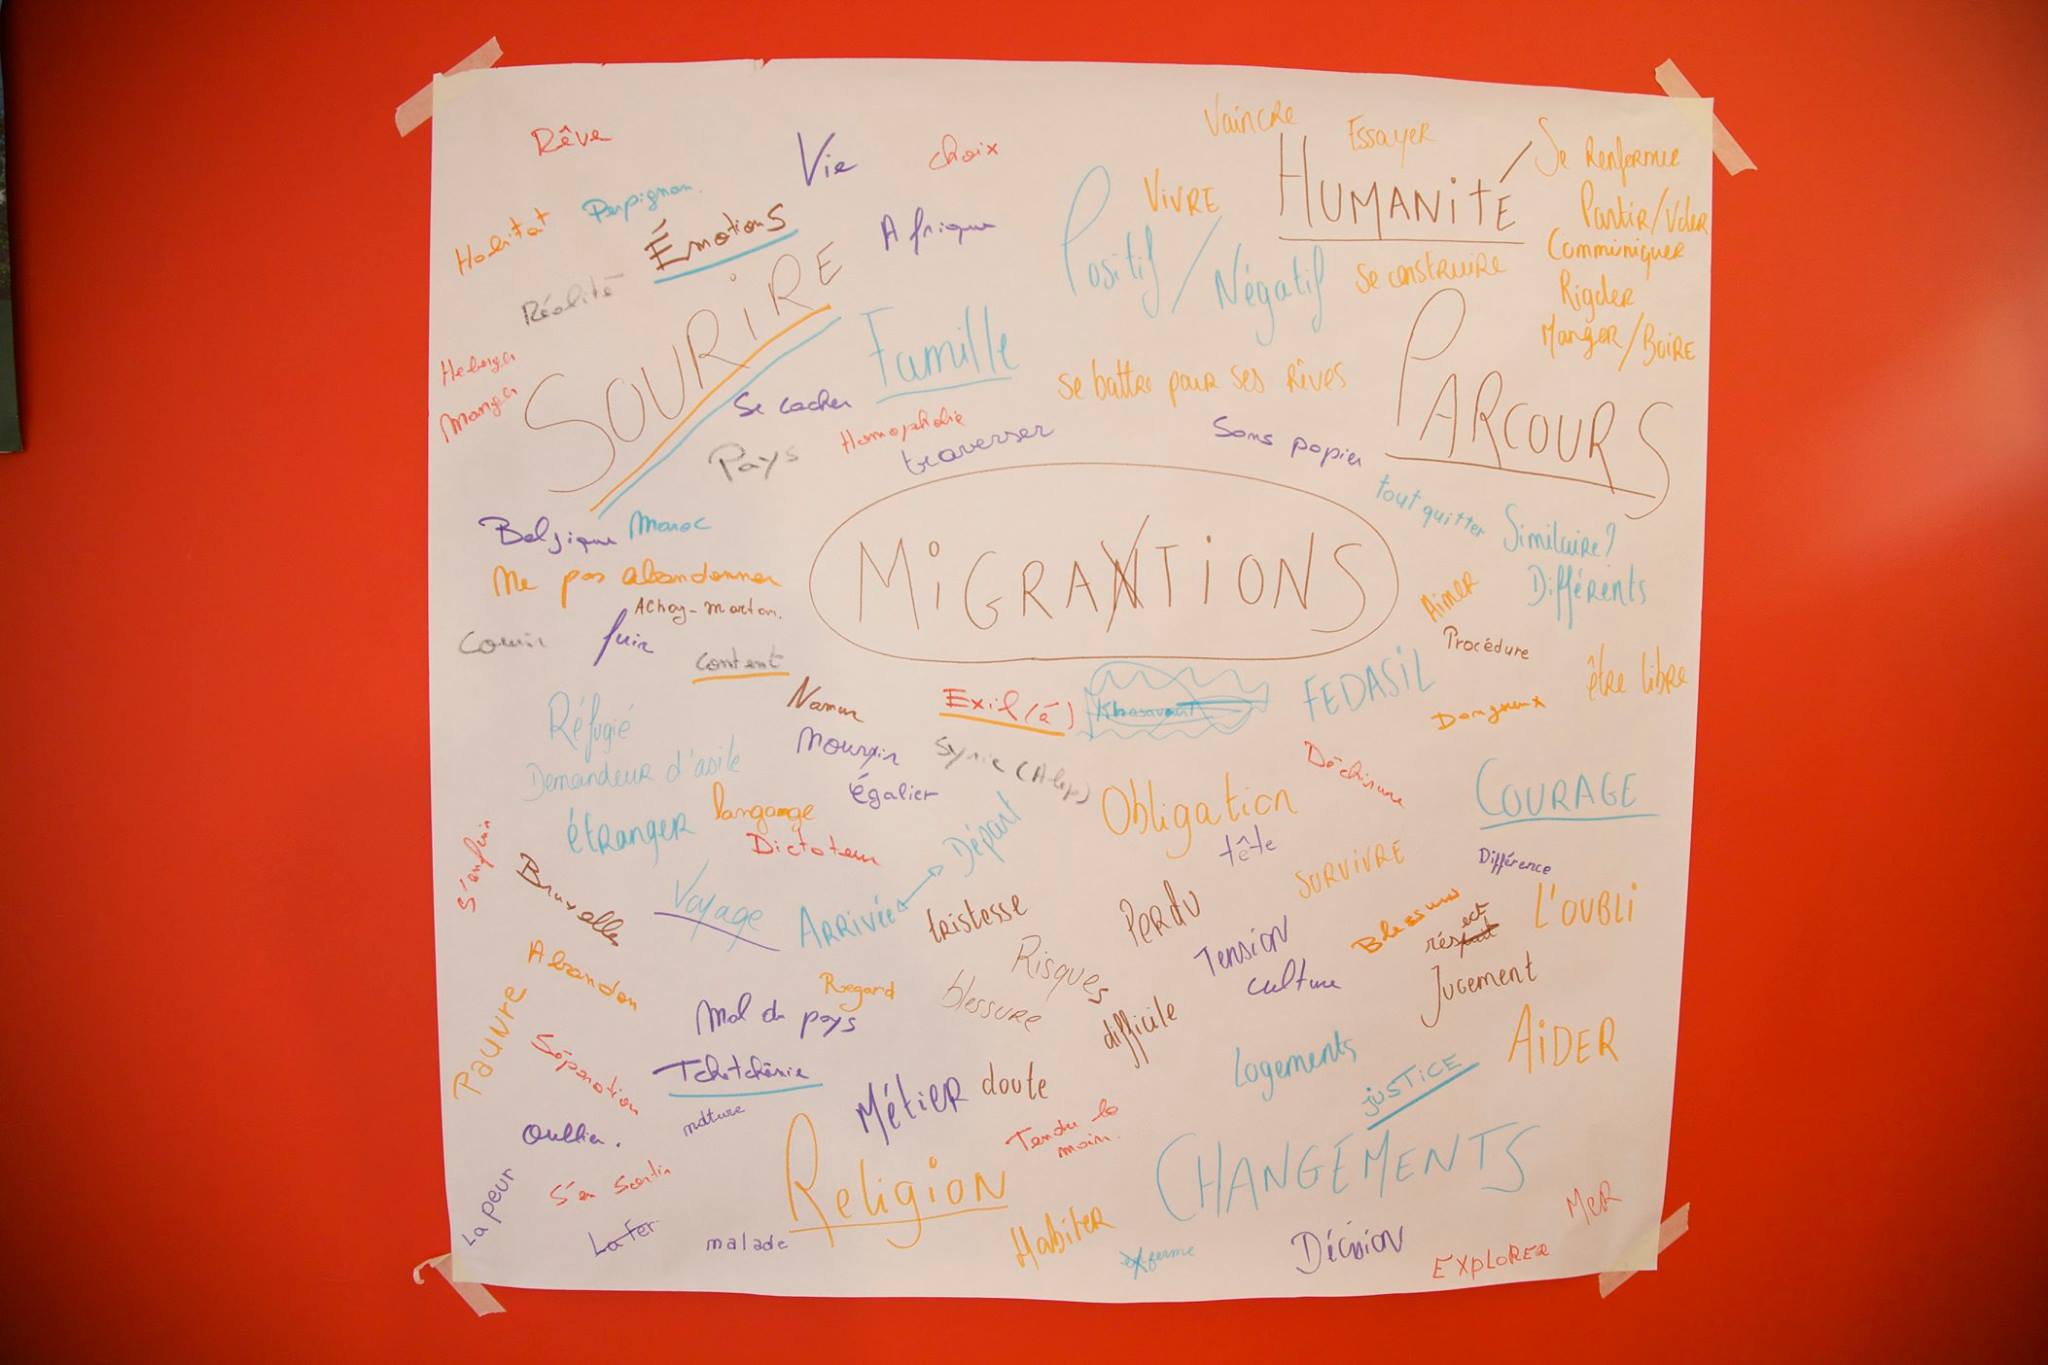 Rêve
Vie
choix
Vaincre
Essayer
Habitat
Perpignan.
Émotions
Afrique
Vivre
Positif / Négatif
HUMANITÉ
Se renfermer
Partir/Voler
Communiquer
Rigoler
Manger/Boire
Se construire
Réalité
SOURIRE
Heberger
Manger
Famille
Se cacher
Se battre pour ses rêves
PARCOURS
Pays
Homophobie
traverser
Sans papier
tout quitter
Similaire?
Différents
Belgique
Maroc
Ne pas abandonner
MiGRANTiONS
Achoy-marton.
Courir
fuir
content
Aimer
Procédure
être libre
Réfugié
Namur
Exil(é)
FEDASIL
Dangereux
Demandeur d'asile
Mourrir
Syrie (Alep)
égalier
Déchirure
étranger
langange
Dictateur
Départ
Obligation
COURAGE
tête
Survivre
Différence
S'enfuir
Bruxelles
Voyage
Arrivée
tristesse
Perdu
Tension
Blessures
résect
L'OUBLi
Abandon
Regard
Risques
culture
Jugement
Pauvre
Mal du pays
blessure
difficile
Séparation
Tchétchénie
Métier
doute
Logements
justice
AiDER
Oublier.
nature
Tendre la
main.
La peur
S'en sortir
Religion
CHANGEMENTS
La fer
malade
Habiter
ferme
Décision
Explorer
Mer